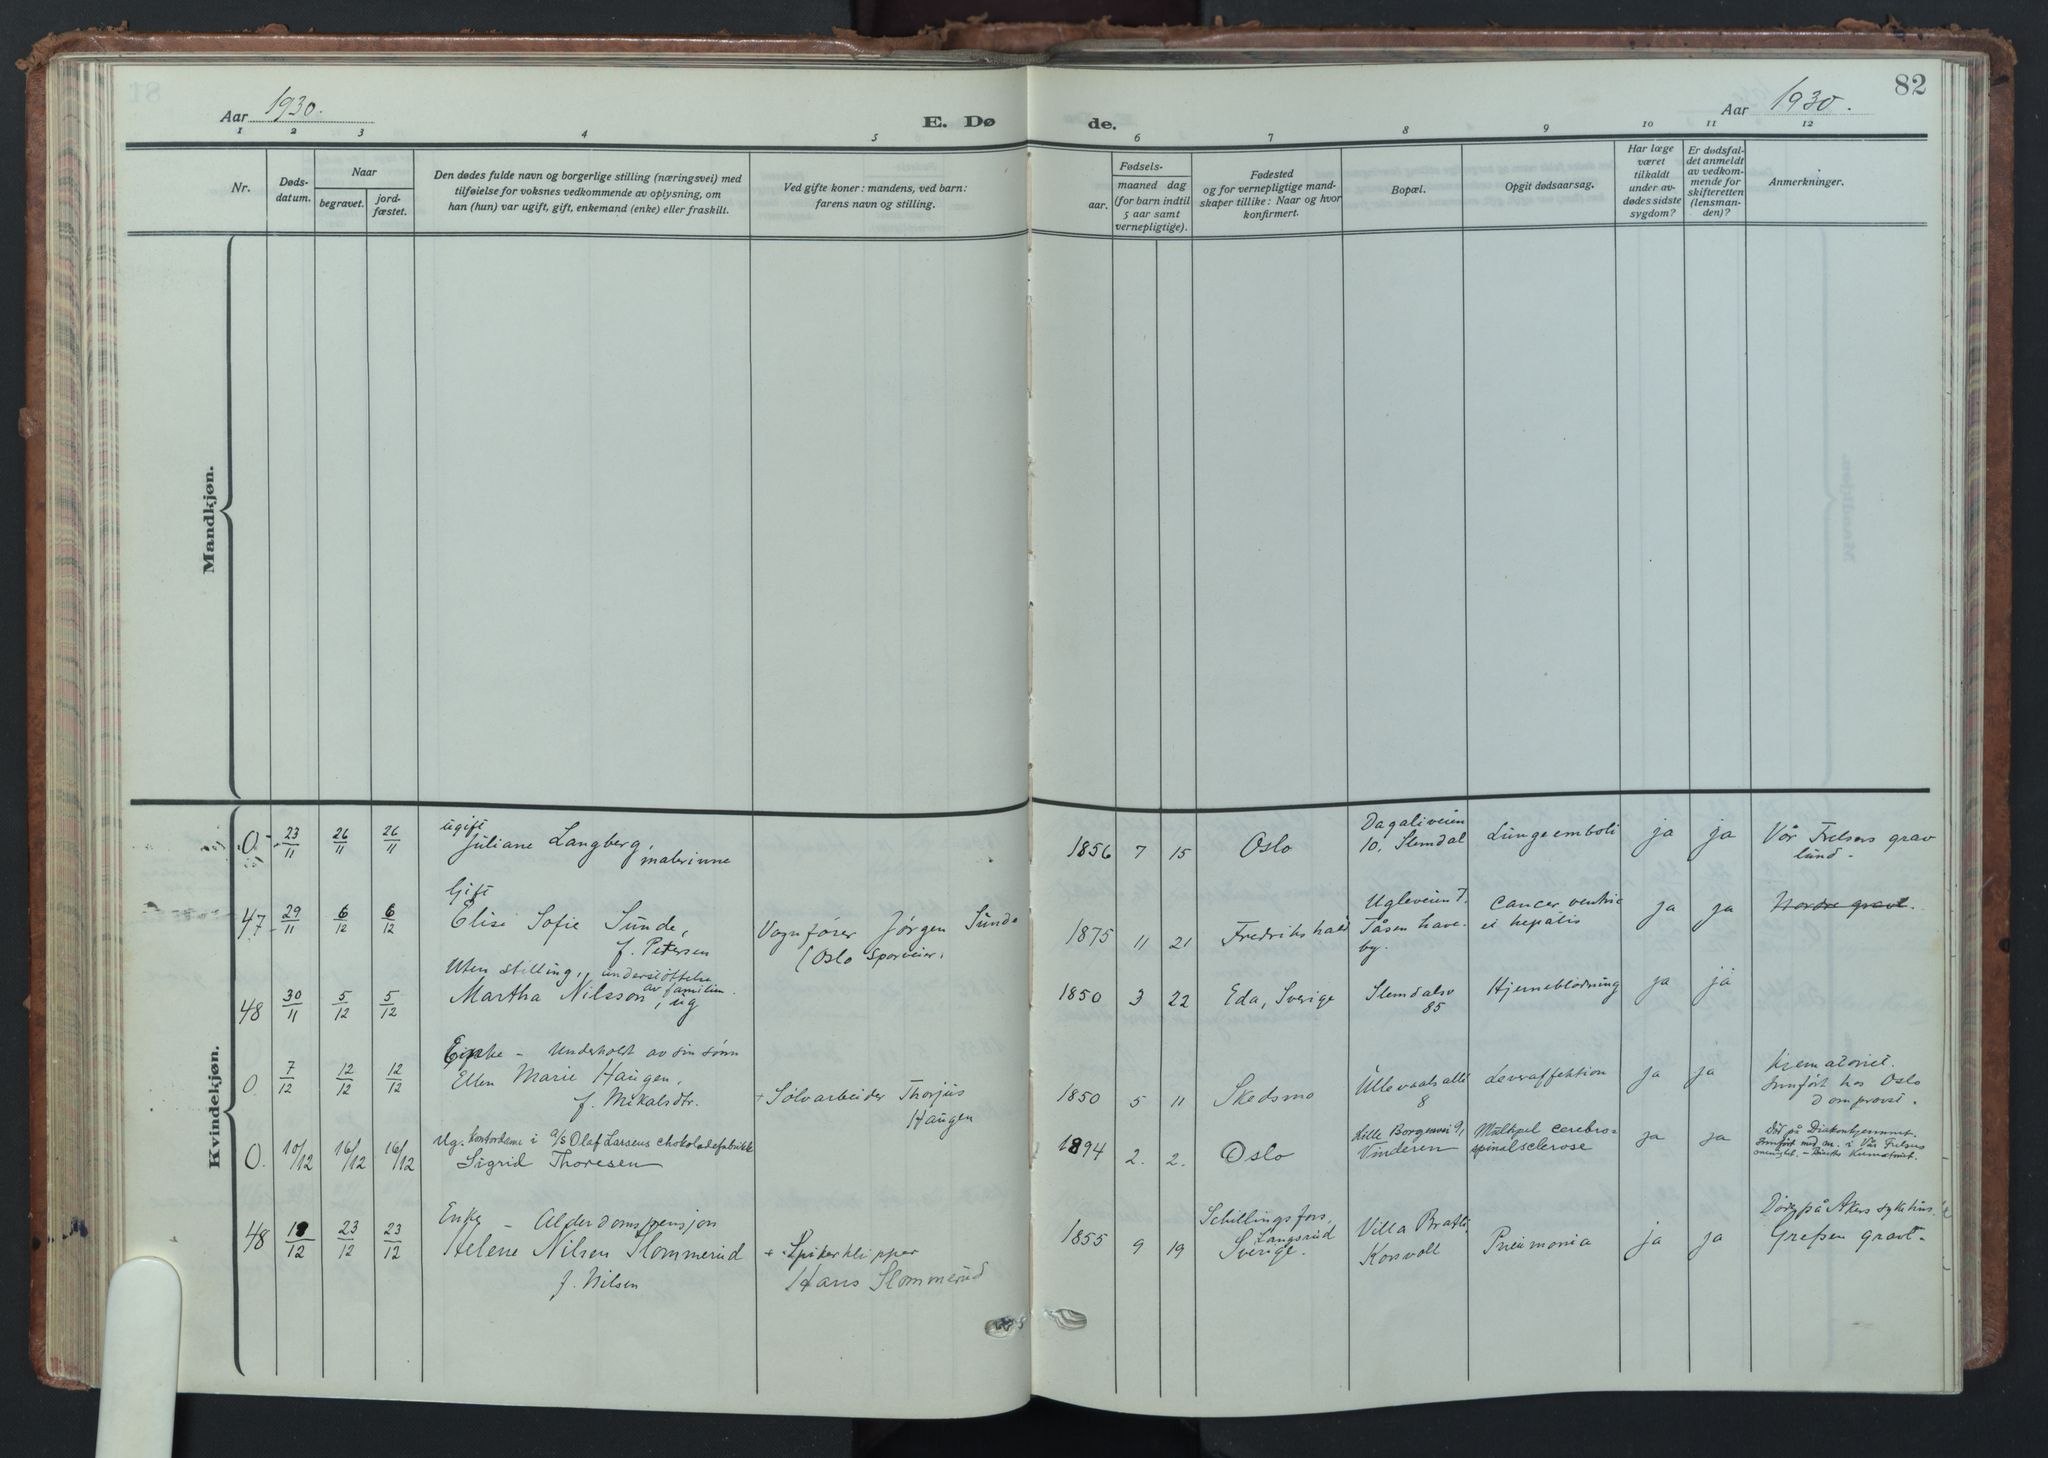 82
Aar 1930.
E. Dø
de.
Aar 1930.
1 2 3 4 5
6 7 8 9 10 11 12
Nr.
Døds-
datum.
Naar
begravet.
jord-
fæstet.
Den dødes fulde navn og borgerlige stilling (næringsvei) med
tilføielse for voksnes vedkommende av oplysning, om
han (hun) var ugift, gift, enkemand (enke) eller fraskilt.
Ved gifte koner: mandens, ved barn:
farens navn og stilling.
aar.
Fødsels-
maaned dag
(for barn indtil
5 aar samt
vernepligtige).
Fødested
og for vernepligtige mand-
skaper tillike: Naar og hvor
konfirmert.
Bopæl.
Opgit dødsaarsag.
Har læge
været
tilkaldt
under av-
dødes sidste
sygdom?
Er dødsfal-
det anmeldt
av vedkom-
mende for
skifteretten
(lensman-
den)?
Anmerkninger.
Mandkjøn.
Kvindekjøn.
0. 23/11 26/11 26/11
ugift
Juliane Langberg,
malerinne
1856 7 15 Oslo
Dagaliveien
10. Slemdal
Lungeemboli ja ja
Vår Frelsers grav
lund.
47 29/11 6/12 6/12
Gift
Elise Sofie Sunde,
f. Petersen
Vognfører Jørgen Sunde
(Oslo Sporveier)
1875 11 21 Fredrikshald
Ugleveien 7.
Tåsen have-
by.
Cancer ventric
et hepatis
ja ja
Nordre gravl.
48 30/11 5/12 5/12
Uten stilling, understøttelse
av familien.
Martha Nilsson, ug
1850 3 22 Eda, Sverige
Slemdalsv
85
Hjerneblødning ja ja
0. 7/12 12/12 12/12
Enke - Underholdt av sin sønn
Ellen Marie Haugen,
f. Mikalsdtr.
+ Sølvarbeider Thorjus
Haugen
1850 5 11 Skedsmo
Ullevaalsalle
8
Leveraffektion ja ja
Krematoriet.
Innført hos Oslo
domprovst.
0. 10/12 16/12 16/12
Ug. kontordame i a/s Olaf Larsens chokoladefabrikk
Sigrid Thoresen
1894 2. 2. Oslo
Lille Borgenvei 9,
Vinderen
Multipel cerebro-
spinalsclerose
ja ja
Død på Diakonhjemmet.
Innført med nr. i Vår Frelsers
48 18/12 23/12 23/12
Enke - Alderdomspensjon
Helene Nilsen Slommerud
f. Nilsen
+ Spikerklipper
Hans Slommerud
1855 9 19
Schillingsfors,
Langsrud
Sverige.
Villa Bratli
Korsvoll
Pneumonia ja ja
Død på Akers sykehus.
Grefsen gravl.